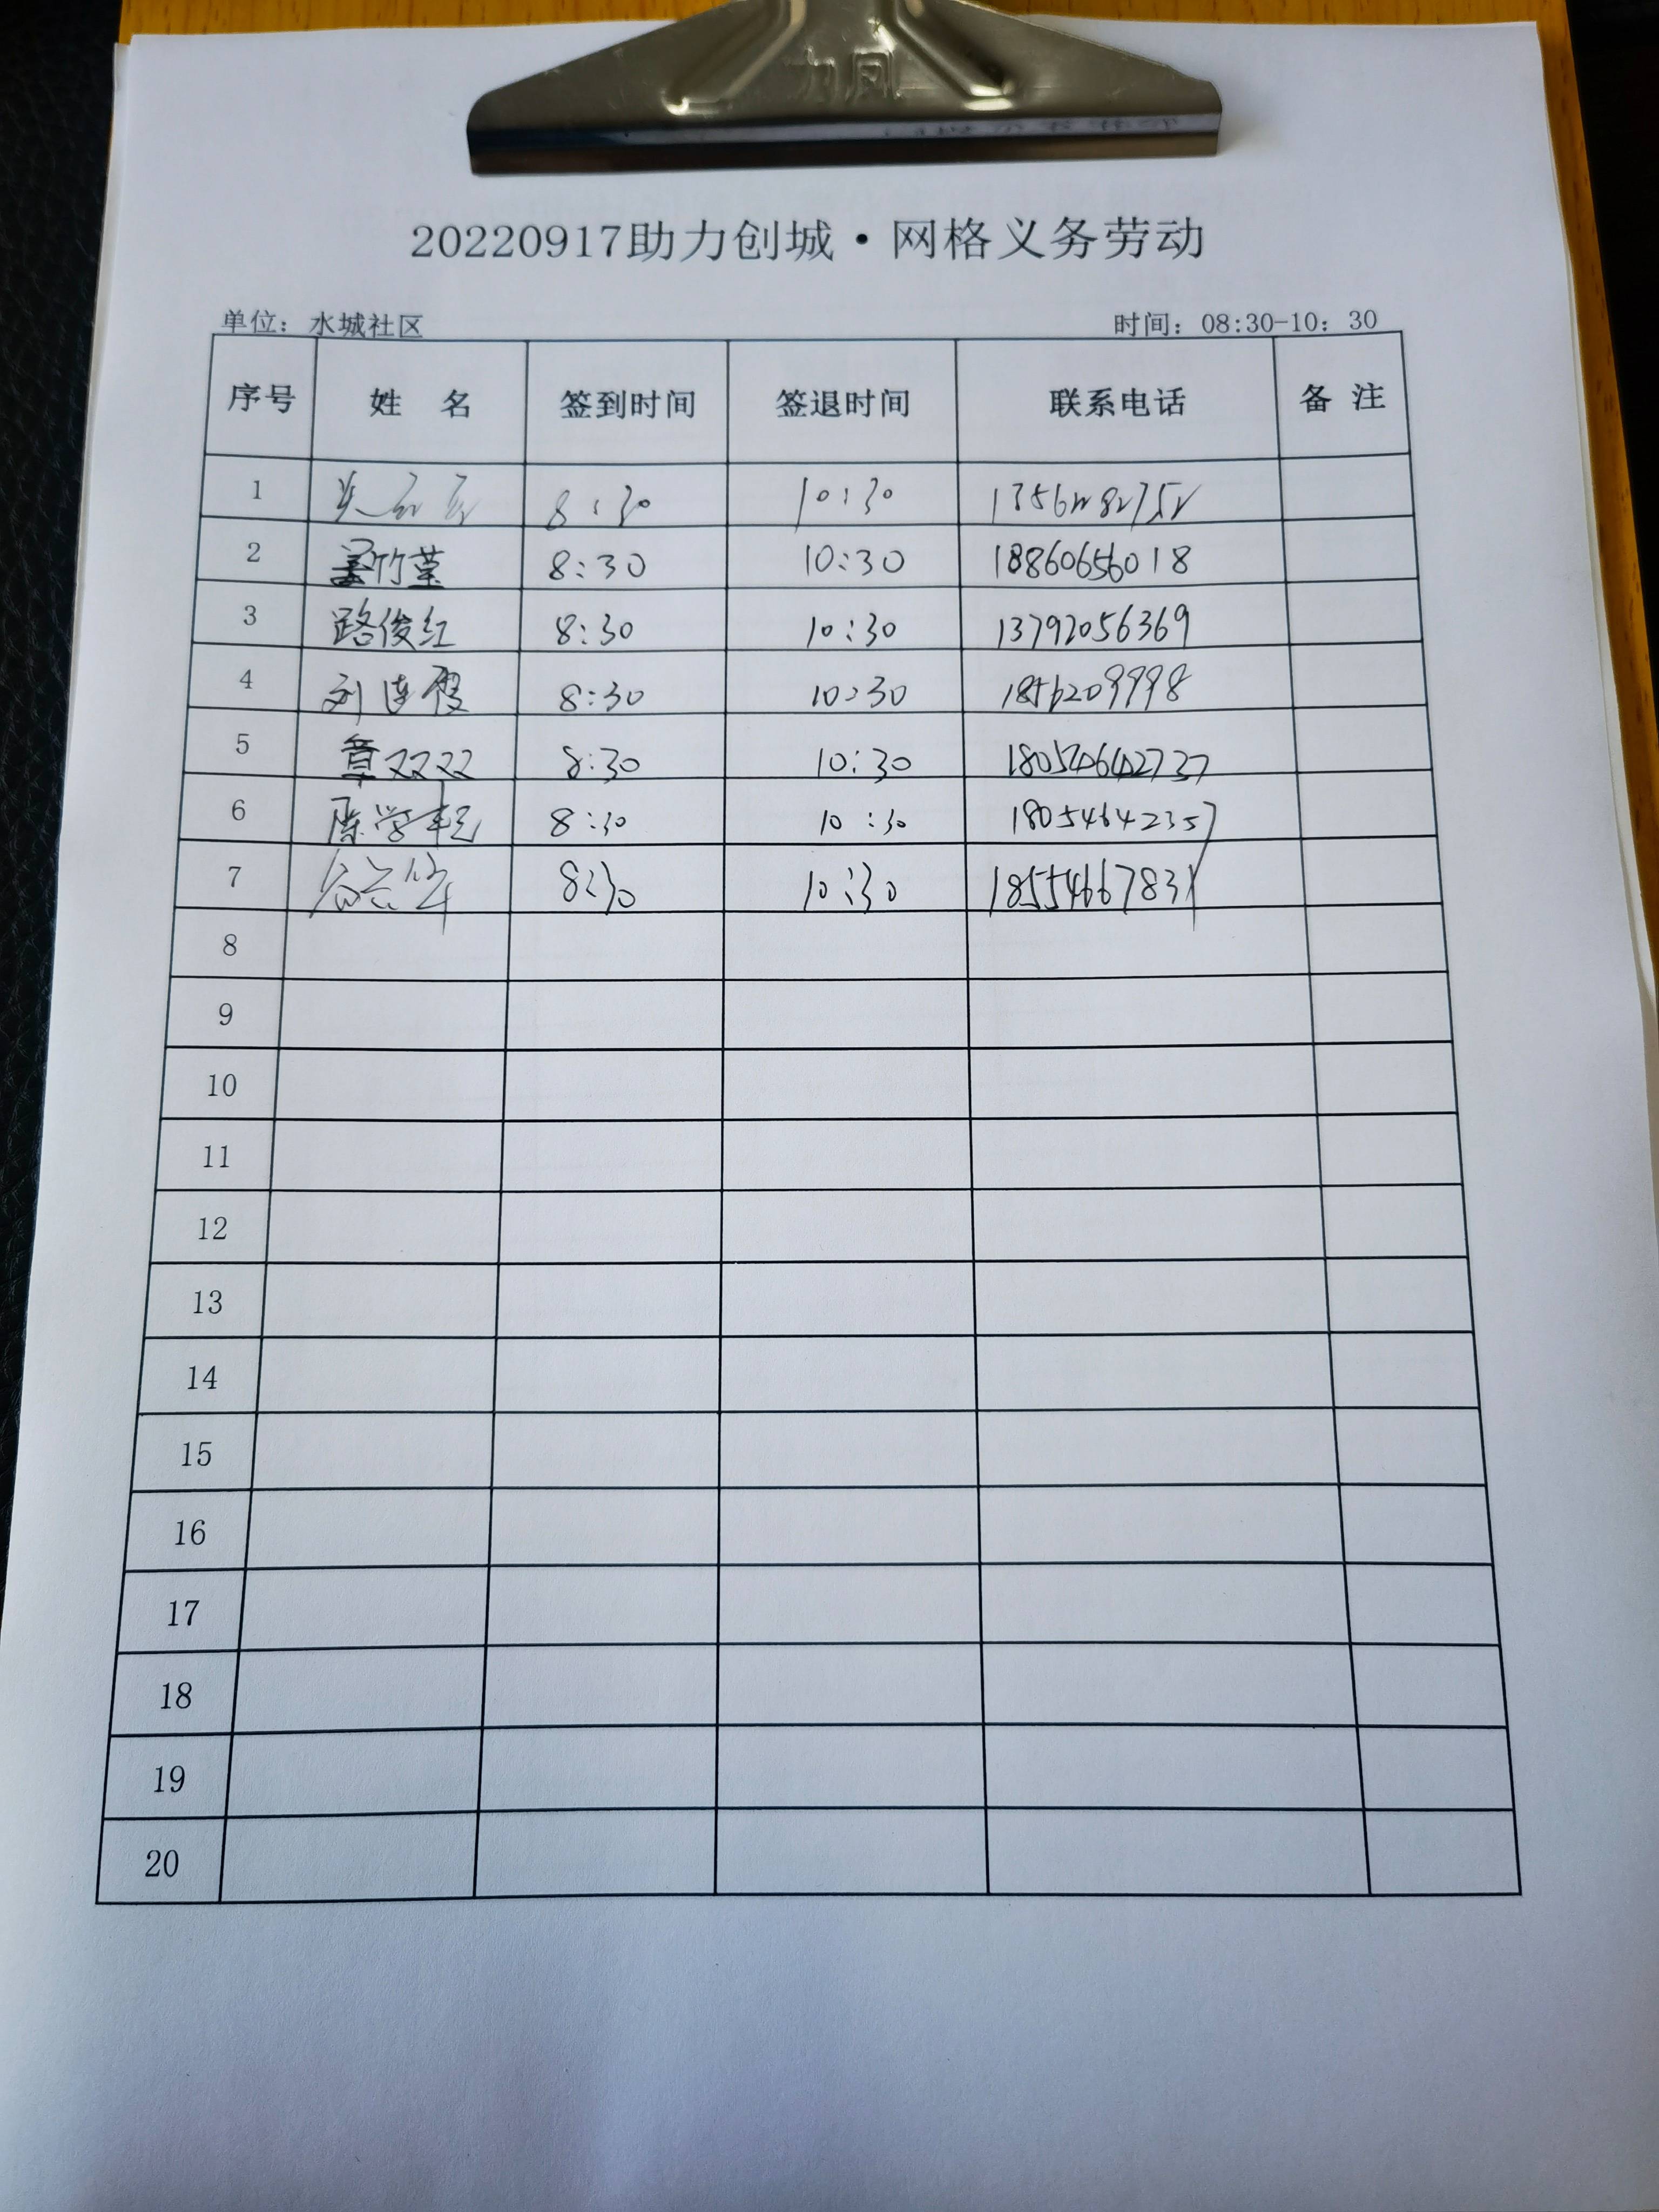 力凤
20220917助力创城·网格义务劳动
单位：水城社区 时间：08:30-10：30
序号 姓 名 签到时间 签退时间 联系电话 备 注
1 8:30 10:30
2 姜竹莹 8:30 10:30 18860656018
3 路俊红 8:30 10:30 13792056369
4 刘连霞 8:30 10:30
5 章双双 8:30 10:30
6 陈学 8:30 10:30 18054642357
7 8:30 10:30 18554667831
8
9
10
11
12
13
14
15
16
17
18
19
20